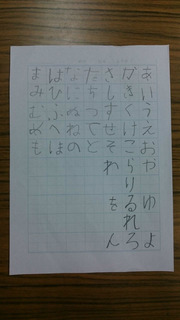 あいうえおや ゆ よ
かきくけこらりるれろ
さしすせそわ を ん
たちつてと
なにぬねの
はひふへほ
まみむめも